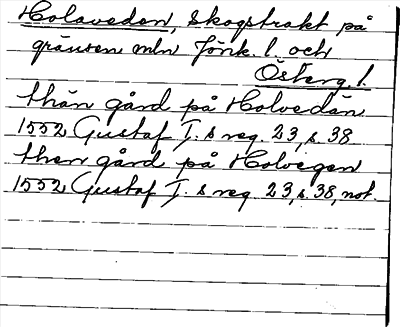 Holaveden, Skogstrakt på
gränsen mln Jönk. l. och
Österg. l.
thän gård på Holvedän
1552 Gustaf I. s reg. 23, s. 38
then gård på Holvegen
1552 Gustaf I. s reg. 23, s. 38, not.